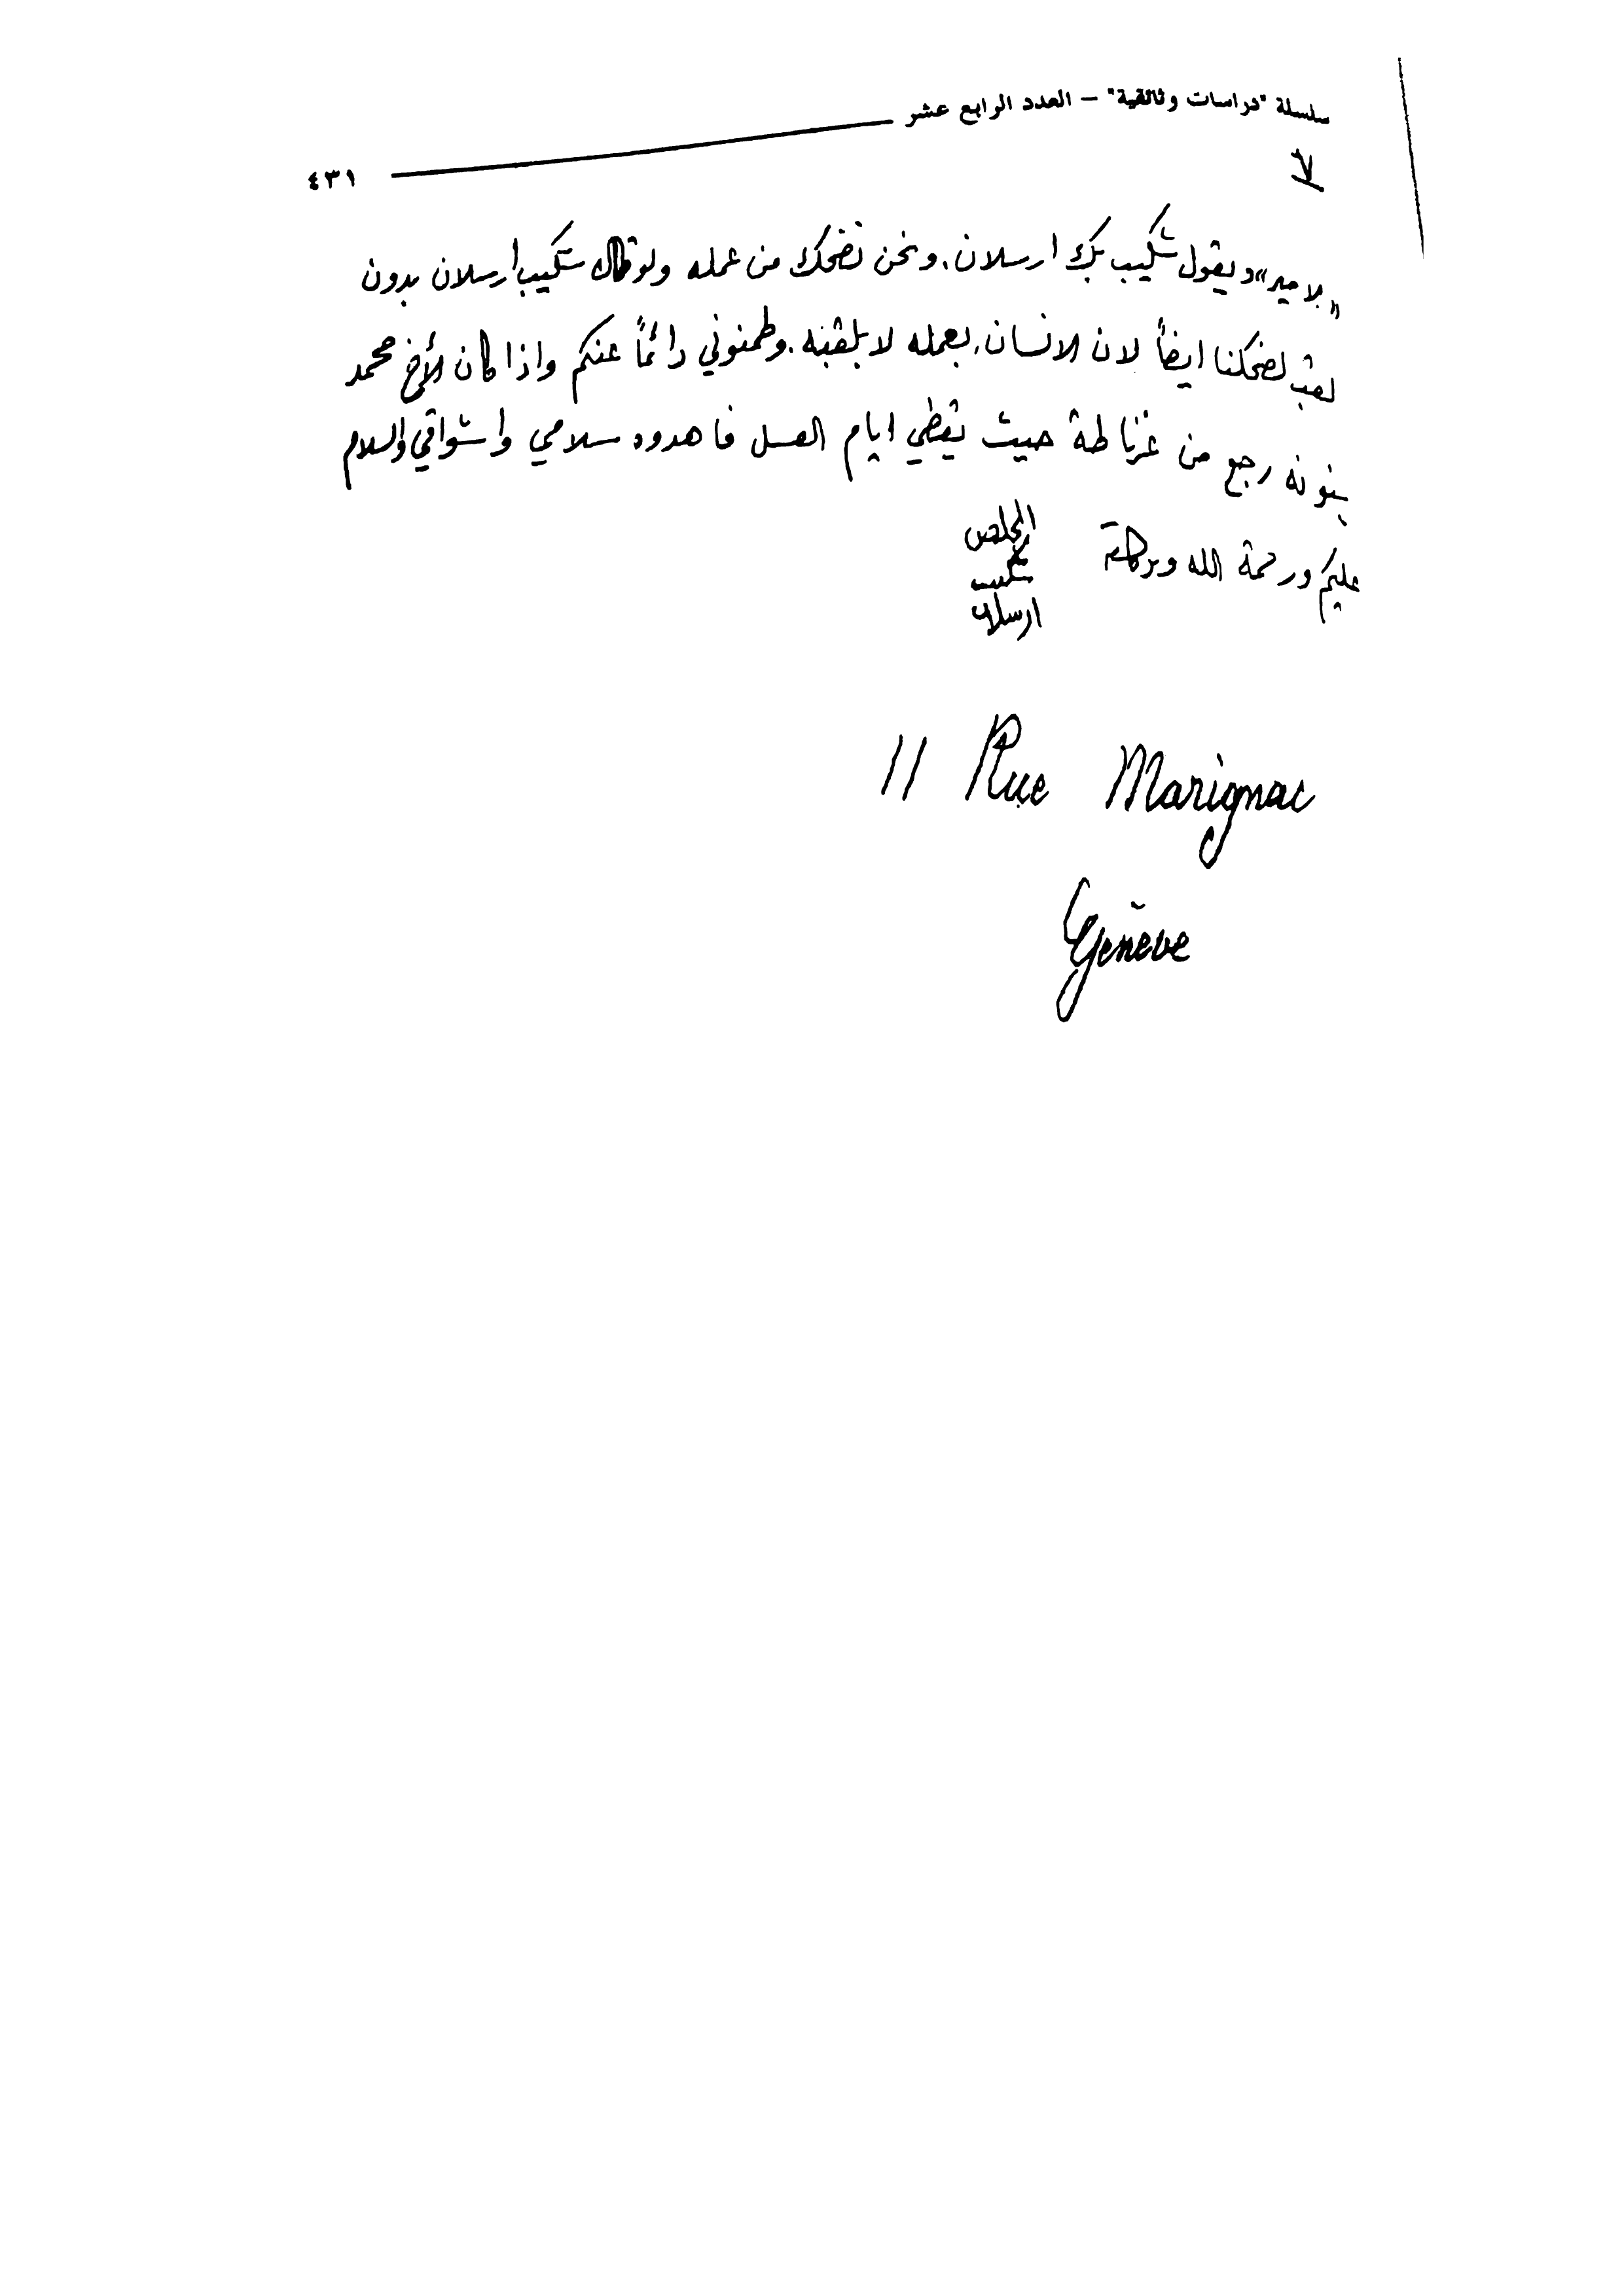 سلسلة "دراسات وثائقية" – العدد الرابع عشر
٤٣١
"بلامير" ويقول شكيب بك ارسلان. ونحن نضحك من عمله ولو قال شكيب ارسلان بدون
لقب لضحكنا ايضاً لان الانسان بعمله لا بلقبه. وطمنوني دائماً عنكم واذا كان الأخ محمد
بنونه رجع من غرناطة حيث يقظي ايام العسل فاهدوه سلامي واشواقي والسلام
عليكم ورحمة الله وبركاته
المخلص
شكيب
ارسلان
11 Rue Marignac
Genève